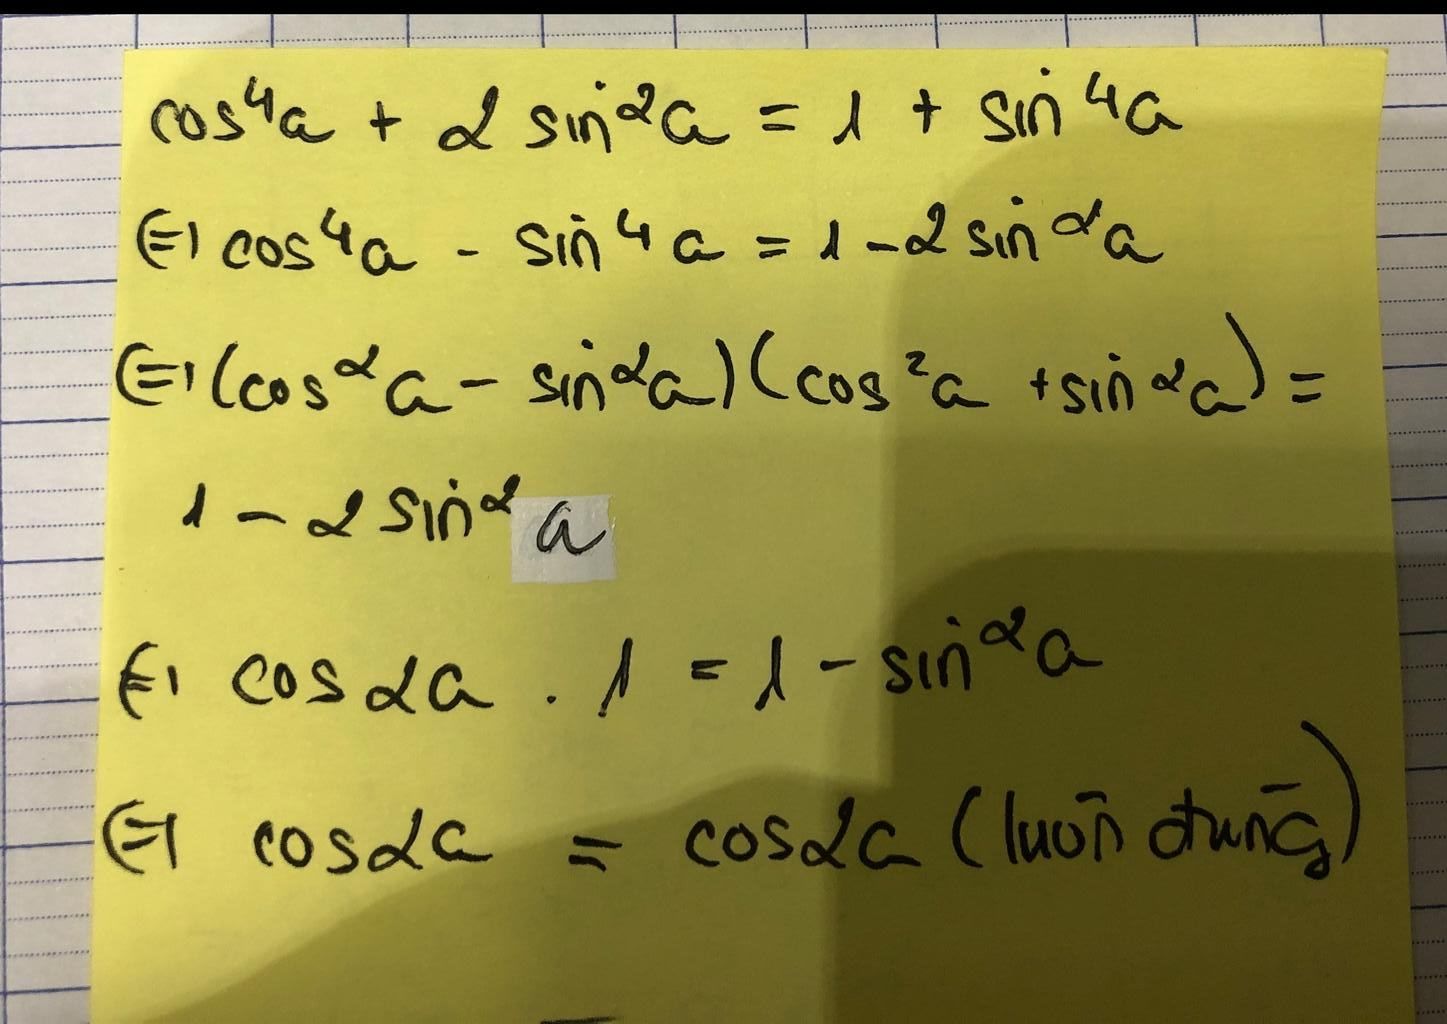 cos⁴a + 2 sin²a = 1 + sin⁴a
⇔ cos⁴a - sin⁴a = 1 - 2 sin²a
⇔ (cos²a - sin²a)(cos²a + sin²a) =
1 - 2 sin²a
⇔ cos2a . 1 = 1 - sin²a
⇔ cos2a = cos2a (luôn đúng)